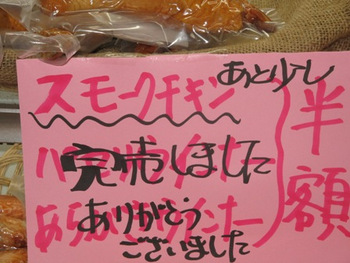 スモークチキン あと少し
半額
完売しました
あらびきウインナー
ありがとう
ございました